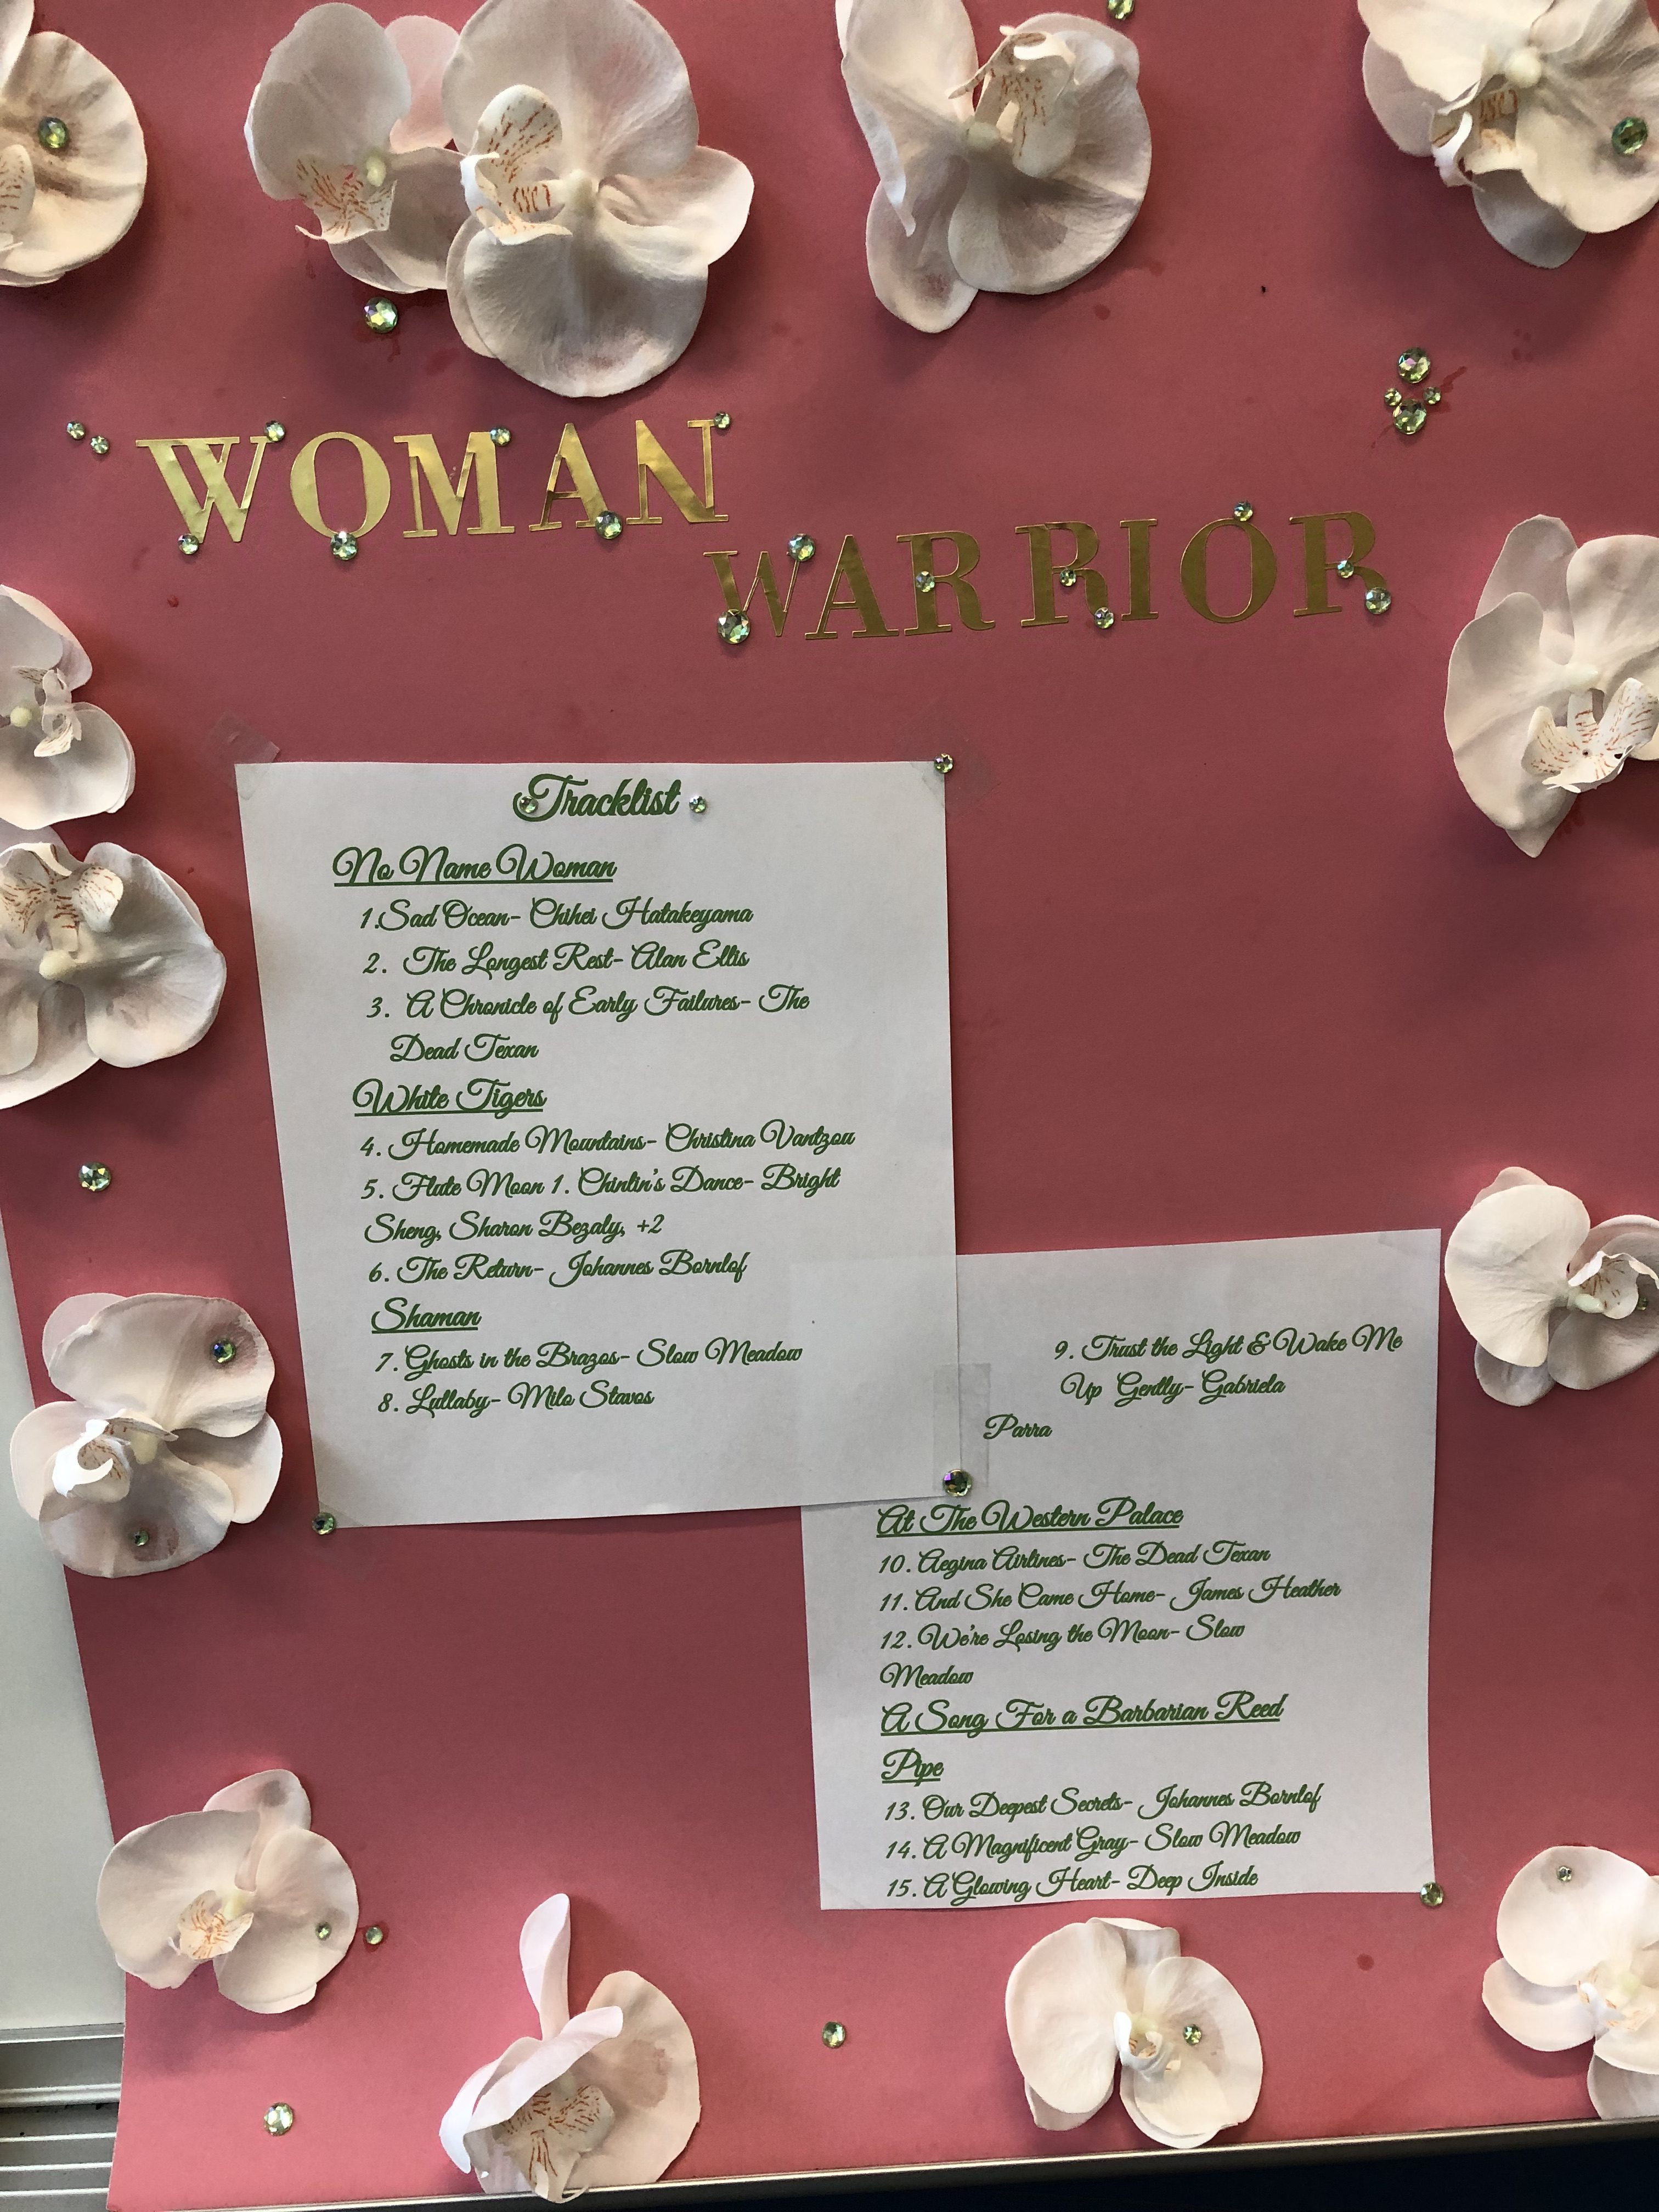 WOMAN
WARRIOR
Tracklist
No Name Woman
1.Sad Ocean- Chihei Hatakeyama
2. The Longest Rest- Alan Ellis
3. A Chronicle of Early Failures- The
Dead Texan
White Tigers
4. Homemade Mountains- Christina Vantzou
5. Flute Moon 1. Chintin's Dance- Bright
Sheng, Sharon Bezaly, +2
6. The Return- Johannes Bornlof
Shaman
7. Ghosts in the Brazos- Slow Meadow
8. Lullaby- Milo Stavos
9. Trust the Light & Wake Me
Up Gently- Gabriela
Parra
At The Western Palace
10. Aegina Airlines- The Dead Texan
11. And She Came Home- James Heather
12. We're Losing the Moon- Slow
Meadow
A Song For a Barbarian Reed
Pipe
13. Our Deepest Secrets- Johannes Bornlof
14. A Magnificent Gray- Slow Meadow
15. A Glowing Heart- Deep Inside